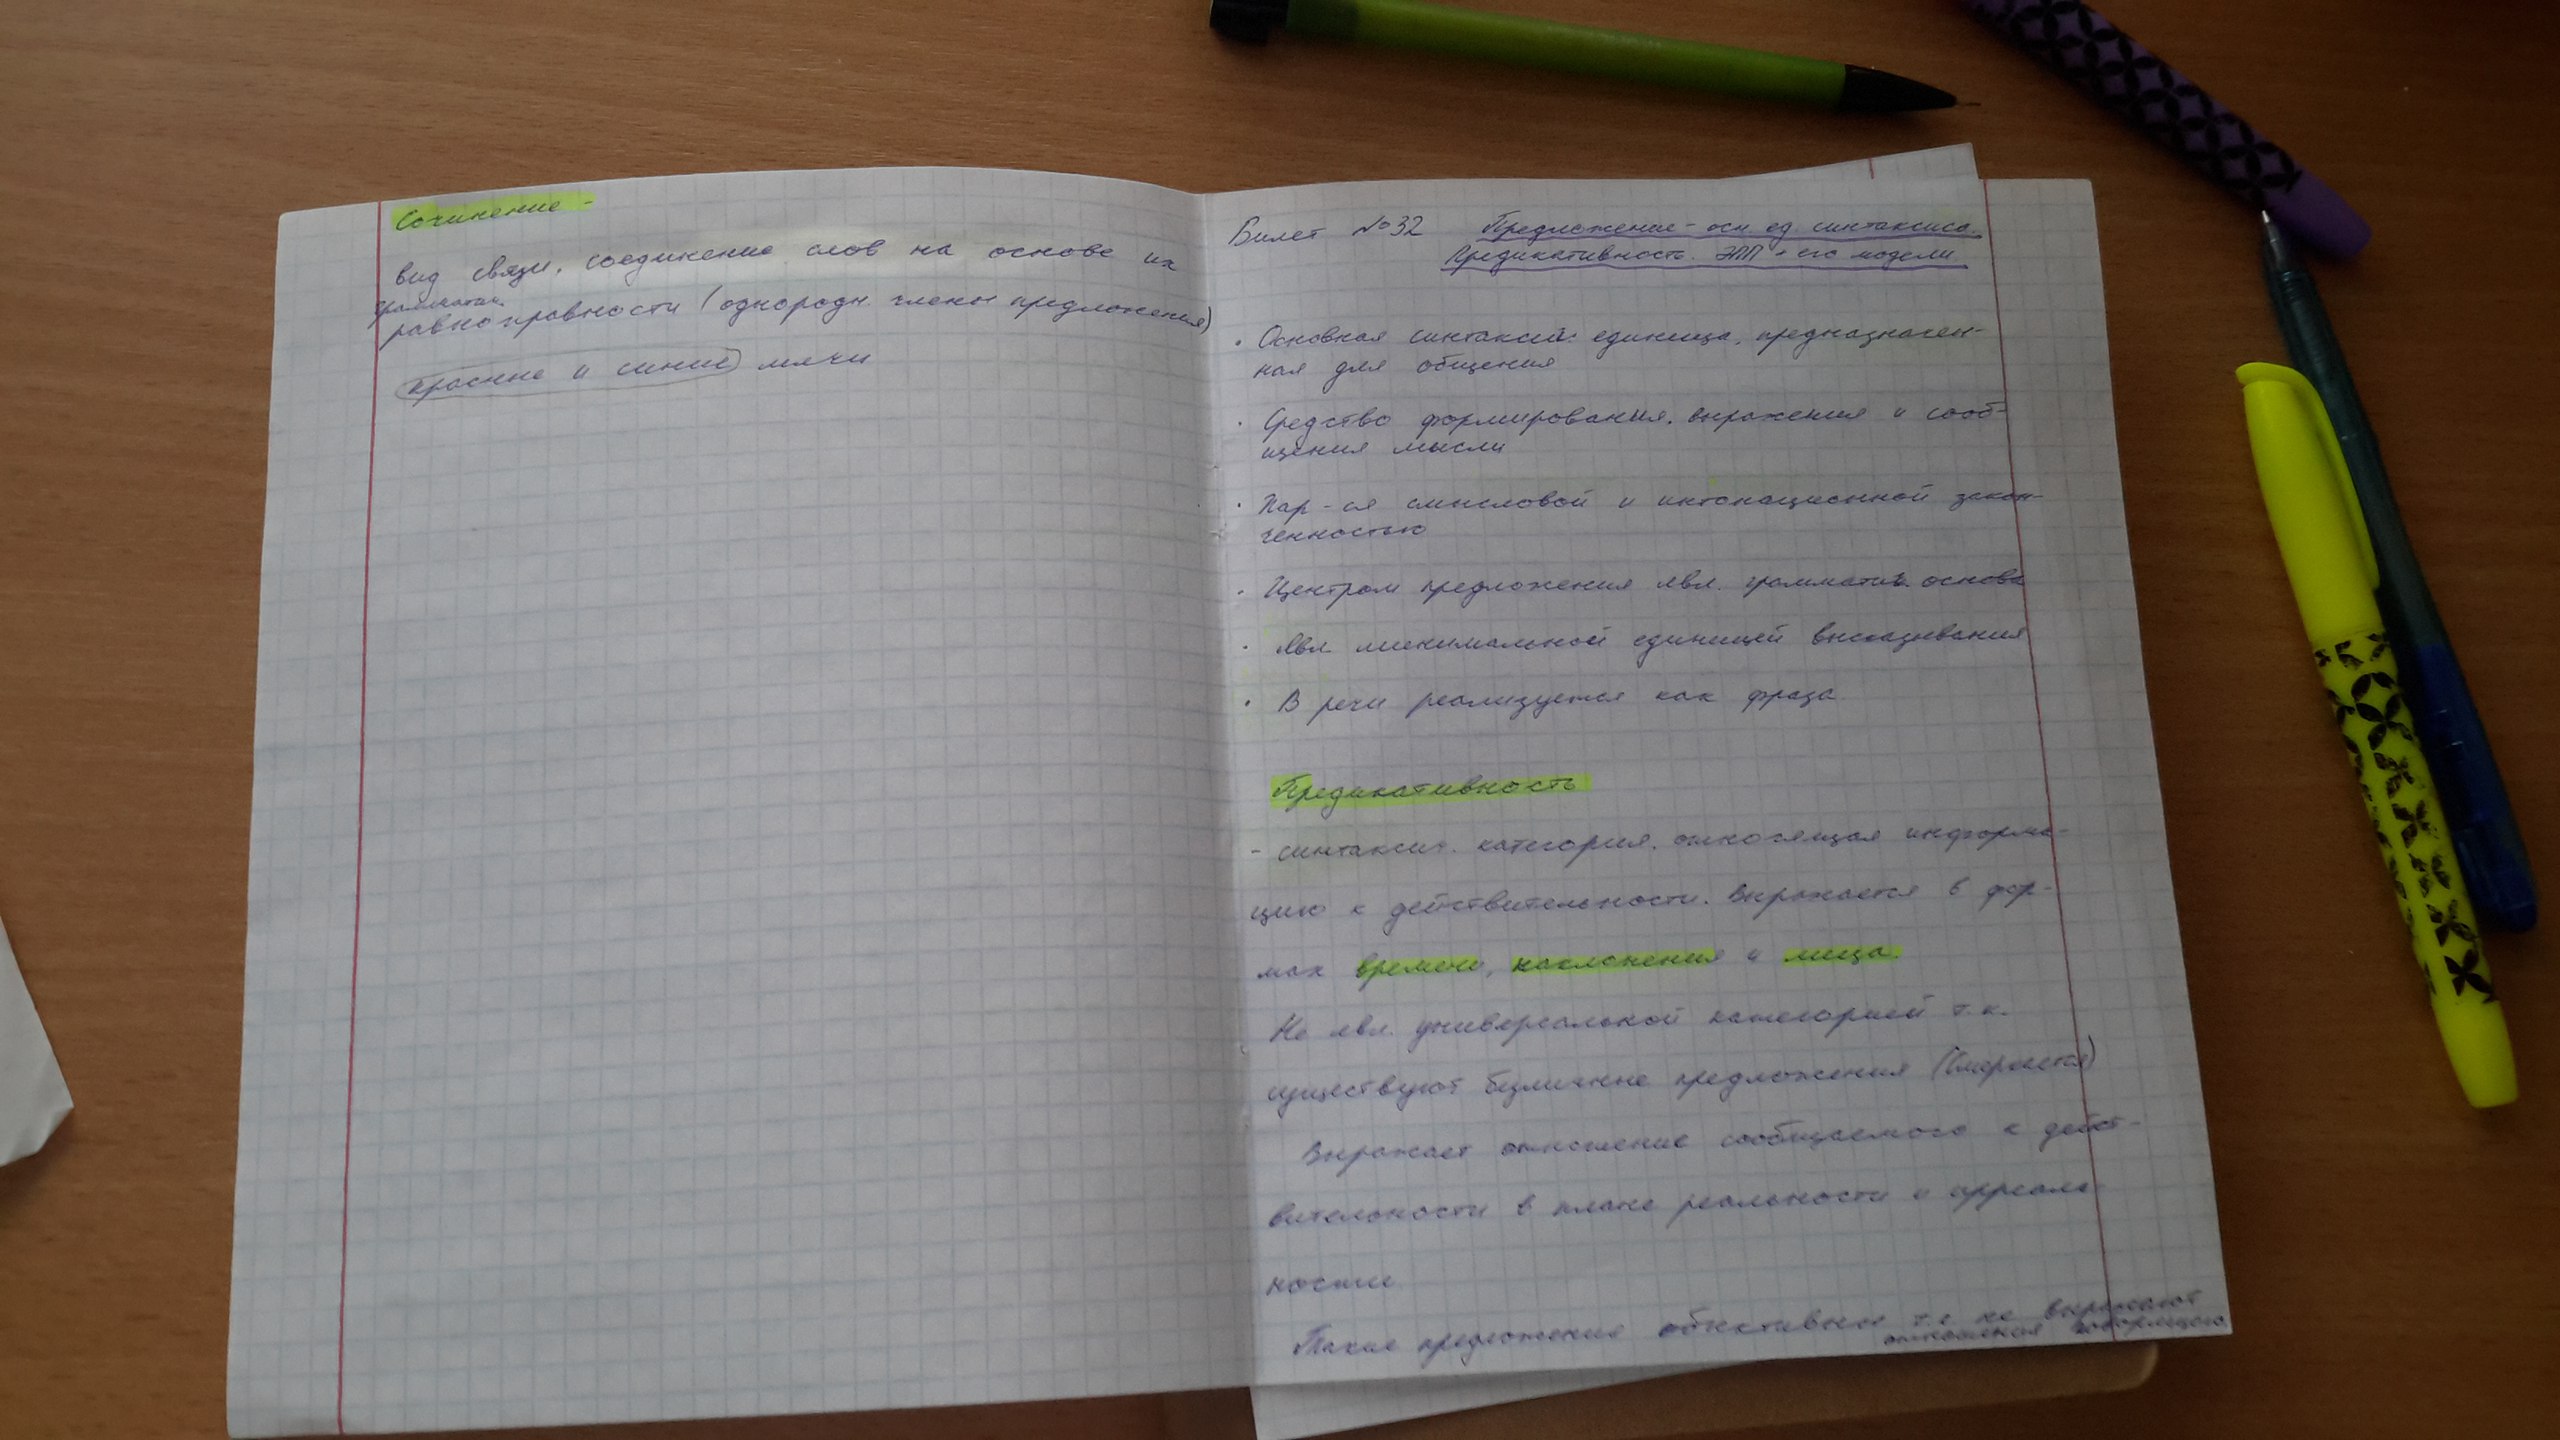 Сочинение -
вид связи, соединение слов на основе их
грамматич.
равноправности (однородн. члены предложения)
красные и синие мячи
Билет №32 Предложение - осн. ед. синтаксиса.
Предикативность. ЭПП + его модели
• Основная синтаксич. единица, предназначен-
ная для общения
• Средство формирования, выражения и сооб-
щения мысли
• Хар-ся смысловой и интонационной закон-
ченностью
• Центром предложения явл. грамматич. основа
• Явл. минимальной единицей высказывания
• В речи реализуется как фраза
Предикативность
- синтаксич. категория, относящая информа-
цию к действительности. Выражается в фор-
мах времени, наклонения и лица.
Не явл. универсальной категорией т.к.
существуют безличные предложения (Смеркается)
Выражает отношение сообщаемого к дейст-
вительности в плане реальности и ирреаль-
ности
Такие предложения объективны т.е не выражают
отношения говорящего